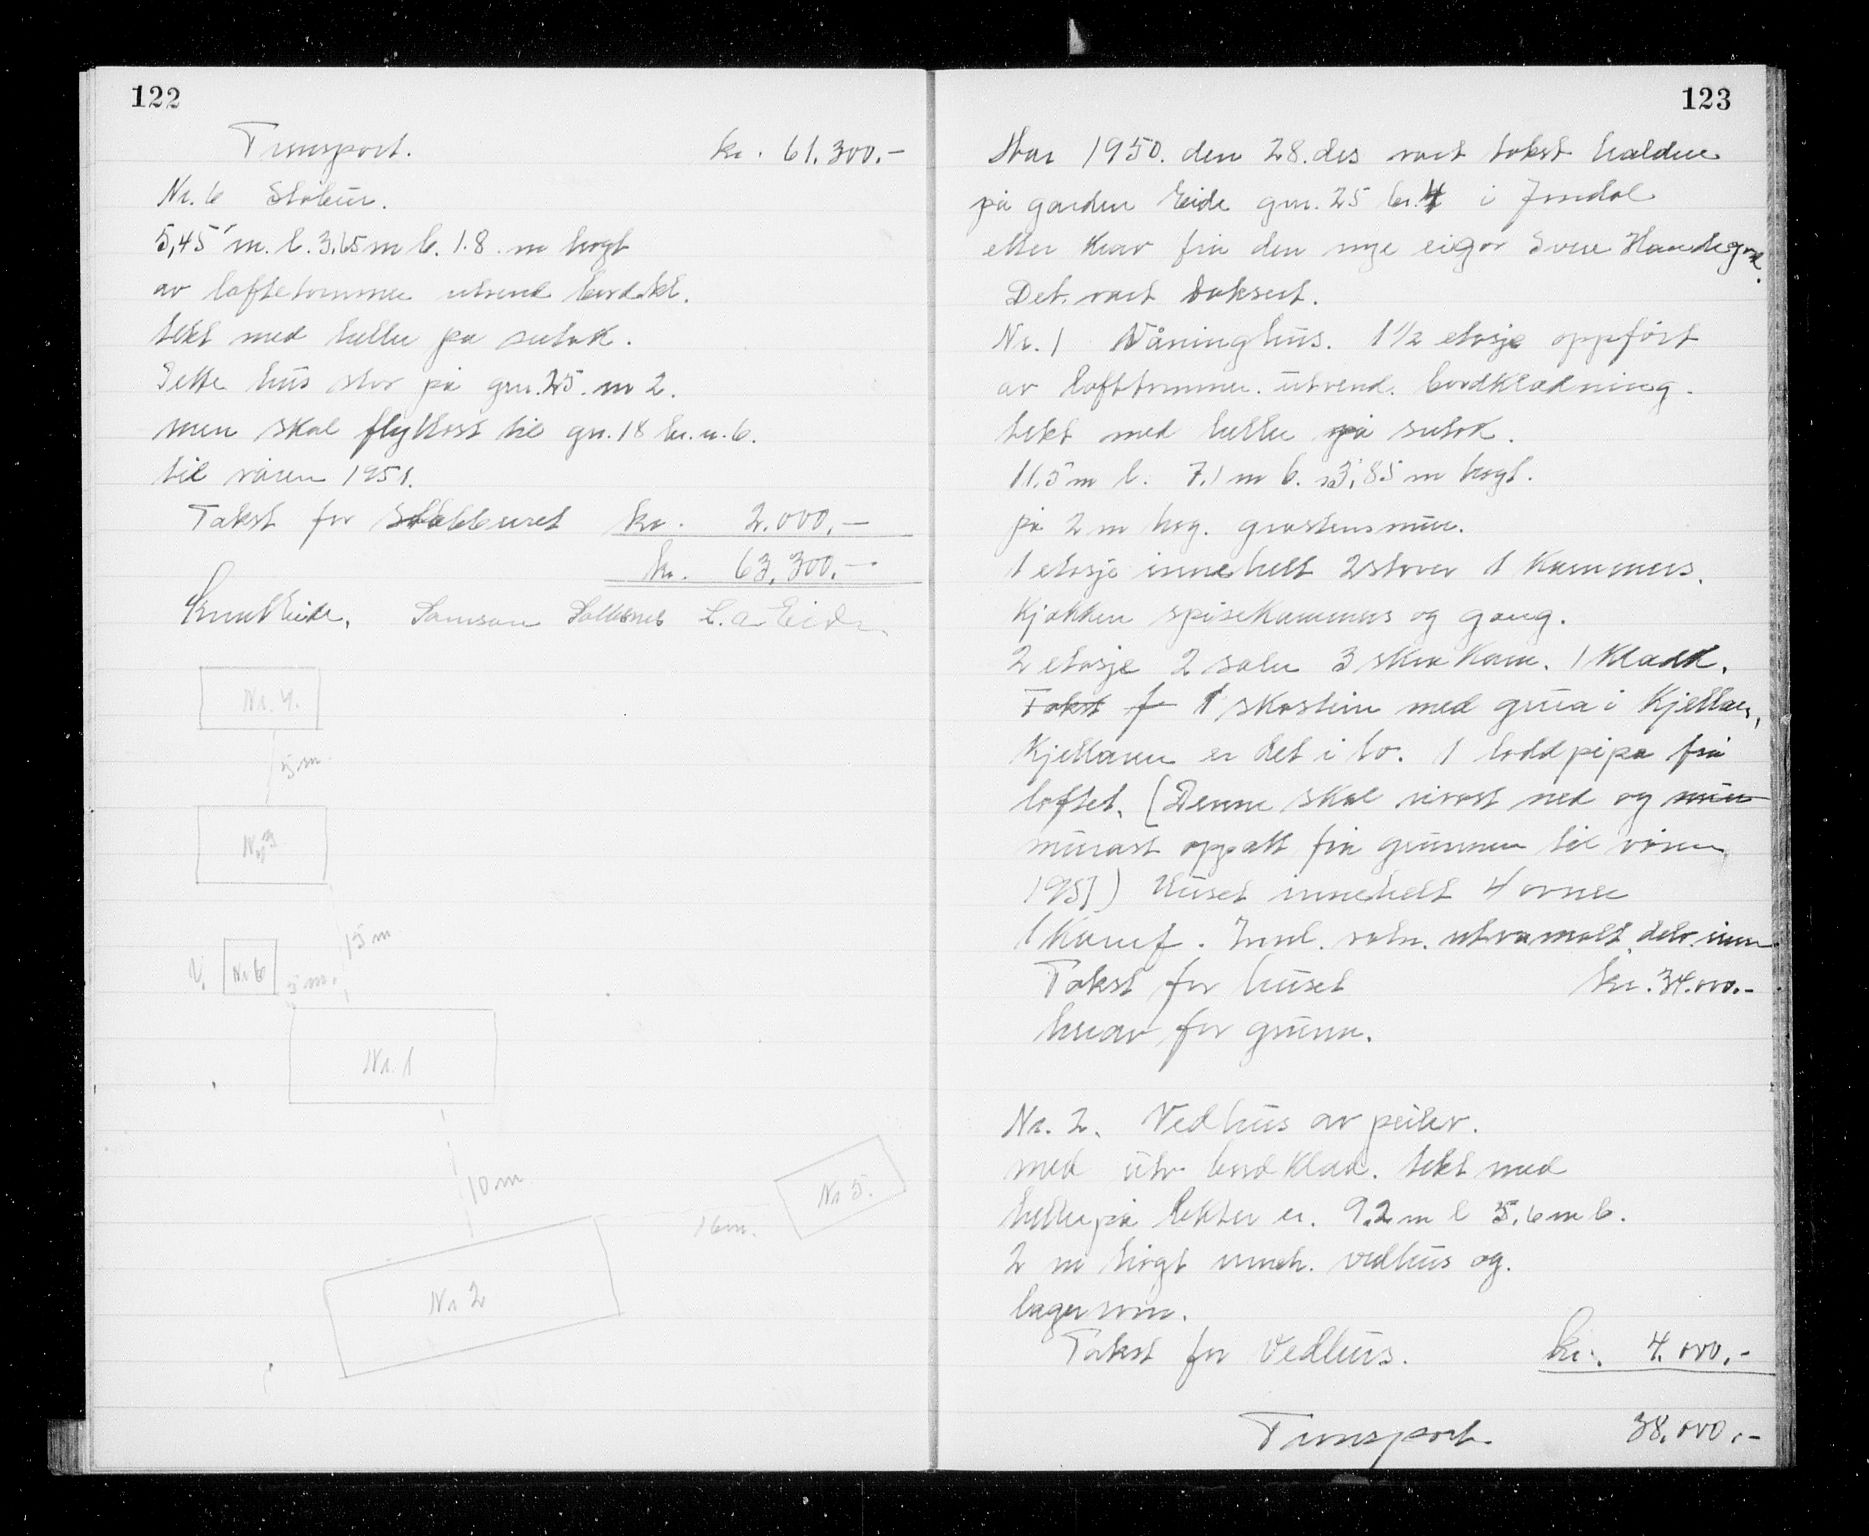 122
Transport. kr. 61.300.-
Nr. 6 Stabur.
5,45 m. l. 3,65 m b. 1.8. m hogt
av loftetømmer utvend bordkl.
tekt med heller pa sutak.
Dette hus stor på gnr. 25. nr 2.
men skal flyttast til gn. 18 br. n. 6.
til våren 1951.
Takst for Stabburet kr. 2.000,-
kr. 63.300.-
Knut Eide, Samson L. A. Eide
Nr. 4.
5 m.
Nr. 3
15 m
V. Nr 6
5 m.
Nr. 1
10 m
Nr 5.
16 m.
Nr 2
123
Aar 1950. den 28. des vart takst halden
på garden Eide gnr. 25 br. 4 i Jondal
etter krav fra den nye eigar Svein
Det. vart taksert.
Nr. 1 Våninghus. 1 1/2 etasje oppført
av lofttømmer. utvend. bordkledning.
tekt med heller på sutak.
11.5 m l. 7.1 m b. 3,85 m hogt.
på 2 m høg. gråsteinsmur.
1 etasje innehelt 2 stover 1 Kammers.
Kjøkken spisekammers og gang.
2 etasje 2 saler 3 skra kam. 1 kladd.
Takst f 1 skorstein med grua i Kjellaren,
Kjellaren er delt i to. 1 loddpipa frå
loftet. (Denne skal rivast ned og mur
murast opp att frå grunnen til våren
1951) Huset innehelt 4 ovner
1 Komf. Innl. vatn. utv. malt, delv. inn
Takst for huset kr. 34.000.-
herav for grunn.
Nr. 2. Vedhus av peiler.
med utv bordklæd. tekt med
heller på lekter er. 9.2 m l 5,6 m b.
2 m høgt inneh. vedhus og.
lagerrom.
Takst for Vedhus. kr. 4.000,-
Transport 38.000.-